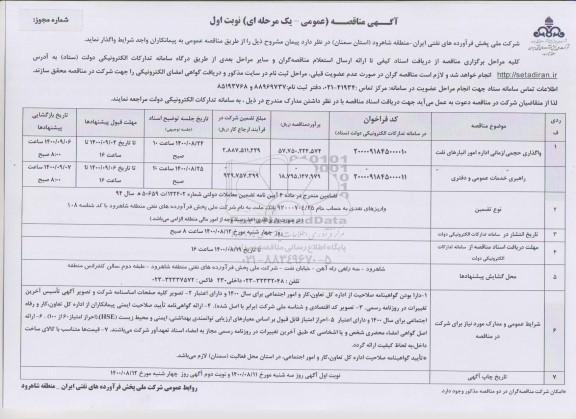 آگهی مناقصه (عمومی – یک مرحله ای) نوبت اول
شماره مجوز:
شرکت ملی پخش فرآورده های نفتی ایران-منطقه شاهرود (استان سمنان) در نظر دارد پیمان مشروح ذیل را از طریق مناقصه عمومی به پیمانکاران واجد شرایط واگذار نماید.
کلیه مراحل برگزاری مناقصه از دریافت اسناد کیفی تا ارائه ارسال استعلام مناقصه‌گران و سایر مراحل بعدی از طریق درگاه سامانه تدارکات الکترونیکی دولت (ستاد) به آدرس
http://setadiran.ir انجام خواهد شد و لازم است مناقصه گران در صورت عدم عضویت قبلی، مراحل ثبت نام در سایت مذکور و دریافت گواهی امضای الکترونیکی را جهت شرکت در مناقصه محقق سازند.
اطلاعات تماس سامانه ستاد جهت انجام مراحل عضویت در سامانه: مرکز تماس: ۴۱۹۳۴-۰۲۱، دفتر ثبت نام: ۸۸۹۶۹۷۳۷ و ۸۵۱۹۳۷۶۸
لذا از متقاضیان شرکت در مناقصه دعوت به عمل می‌آید جهت دریافت اسناد مناقصه با در نظر داشتن مدارک مندرج در ذیل، به سامانه تدارکات الکترونیکی دولت مراجعه نمایند.
ردیف موضوع مناقصه کد فراخوان در سامانه تدارکات الکترونیکی دولت (ستاد) برآوردمناقصه (ریال) مبلغ تضمین شرکت در فرآیند ارجاع کار (ریال) تاریخ جلسه توضیح اسناد (جلسه توجیهی) مهلت قبول پیشنهادها تاریخ بازگشایی پیشنهادها
۱ واگذاری حجمی/زمانی اداره امور انبارهای نفت ۲۰۰۰۰۹۱۸۴۵۰۰۰۰۱۰ ۵۷,۷۵۰,۲۲۴,۵۷۴ ۲,۸۸۷,۵۱۱,۲۲۹ ۱۴۰۰/۰۸/۲۴ ساعت ۱۰ صبح تا تاریخ ۱۴۰۰/۰۹/۰۴ تا ساعت ۱۶ ۱۴۰۰/۰۹/۰۶ ساعت ۸:۰۰ صبح
راهبری خدمات عمومی و دفتری ۲۰۰۰۰۹۱۸۴۵۰۰۰۰۱۱ ۱۸,۷۹۵,۱۴۷,۹۷۹ ۹۳۹,۷۵۷,۳۹۹ ۱۴۰۰/۰۸/۲۵ ساعت ۱۰ صبح ساعت ۱۶ ۱۴۰۰/۰۹/۰۷ ساعت ۸:۰۰ صبح
۲ نوع تضمین تضامین مندرج در ماده ۴ آیین نامه تضمین معاملات دولتی شماره ۱۲۳۴۰۲/ت ۵۰۶۵۹ ه سال ۹۴
بانک ملت به نام شرکت ملی پخش فرآورده های نفتی منطقه شاهرود با کد شناسه ۱۰۸
۳ تاریخ انتشار در سامانه تدارکات الکترونیکی دولت روز چهار شنبه مورخ ۱۴۰۰/۰۸/۱۲ ساعت ۸ صبح
۴ مهلت دریافت اسناد مناقصه از سامانه تدارکات الکترونیکی دولت تا تاریخ ۱۴۰۰/۰۸/۱۹ ساعت ۱۶
۵ محل گشایش پیشنهادها شاهرود – سه راهی راه آهن – خیابان نفت – شرکت ملی پخش فرآورده های نفتی منطقه شاهرود – طبقه دوم سالن کنفرانس منطقه
تلفن: ۳۲۳۳۳۰۴۸-۰۲۳ داخلی ۲۳۰ فکس: ۳۲۳۳۷۵۷۲-۰۲۳
۶ شرایط عمومی و مدارک مورد نیاز برای شرکت در مناقصه ۱-دارا بودن گواهینامه صلاحیت از اداره کل تعاون،کار و امور اجتماعی برای سال ۱۴۰۰ و دارای اعتبار ۲- تصویر کلیه صفحات اساسنامه شرکت و تصویر آگهی تأسیس آخرین
تغییرات در روزنامه رسمی. ۳- تصویر کد اقتصادی و شناسه ملی شرکت (برابر با اصل شده). ۴- ارائه گواهینامه تأیید صلاحیت ایمنی پیمانکاران از اداره کل تعاون،کار و رفاه
اجتماعی برای سال ۱۴۰۰ و دارای اعتبار ۵- احراز امتیاز قابل قبول بر اساس معیارهای ارزیابی توانمندی بهداشتی، ایمنی و محیط زیست (HSE) (احراز امتیاز ۶۰ از ۱۰۰). ۶- ارائه
اصل گواهی امضاء محضری شخص و یا اشخاصی که طبق آخرین تغییرات در روزنامه رسمی مجاز به امضاء اسناد تعهدآور شرکت می‌باشند. ۷-قیمت‌ها متناسب با کالای ساخت
داخل،به لحاظ کیفیت ارائه گردد.
*تأیید گواهینامه صلاحیت اداره کل تعاون،کار و امور اجتماعی، در استان محل فعالیت (سمنان) لازم می‌باشد.
۷ تاریخ چاپ آگهی نوبت اول آگهی روز سه شنبه مورخ ۱۴۰۰/۰۸/۱۱ و نوبت دوم آگهی روز چهار شنبه مورخ ۱۴۰۰/۰۸/۱۲
*امکان شرکت مناقصه‌گران در دو مناقصه مذکور وجود دارد.
روابط عمومی شرکت ملی پخش فرآورده های نفتی ایران _ منطقه شاهرود